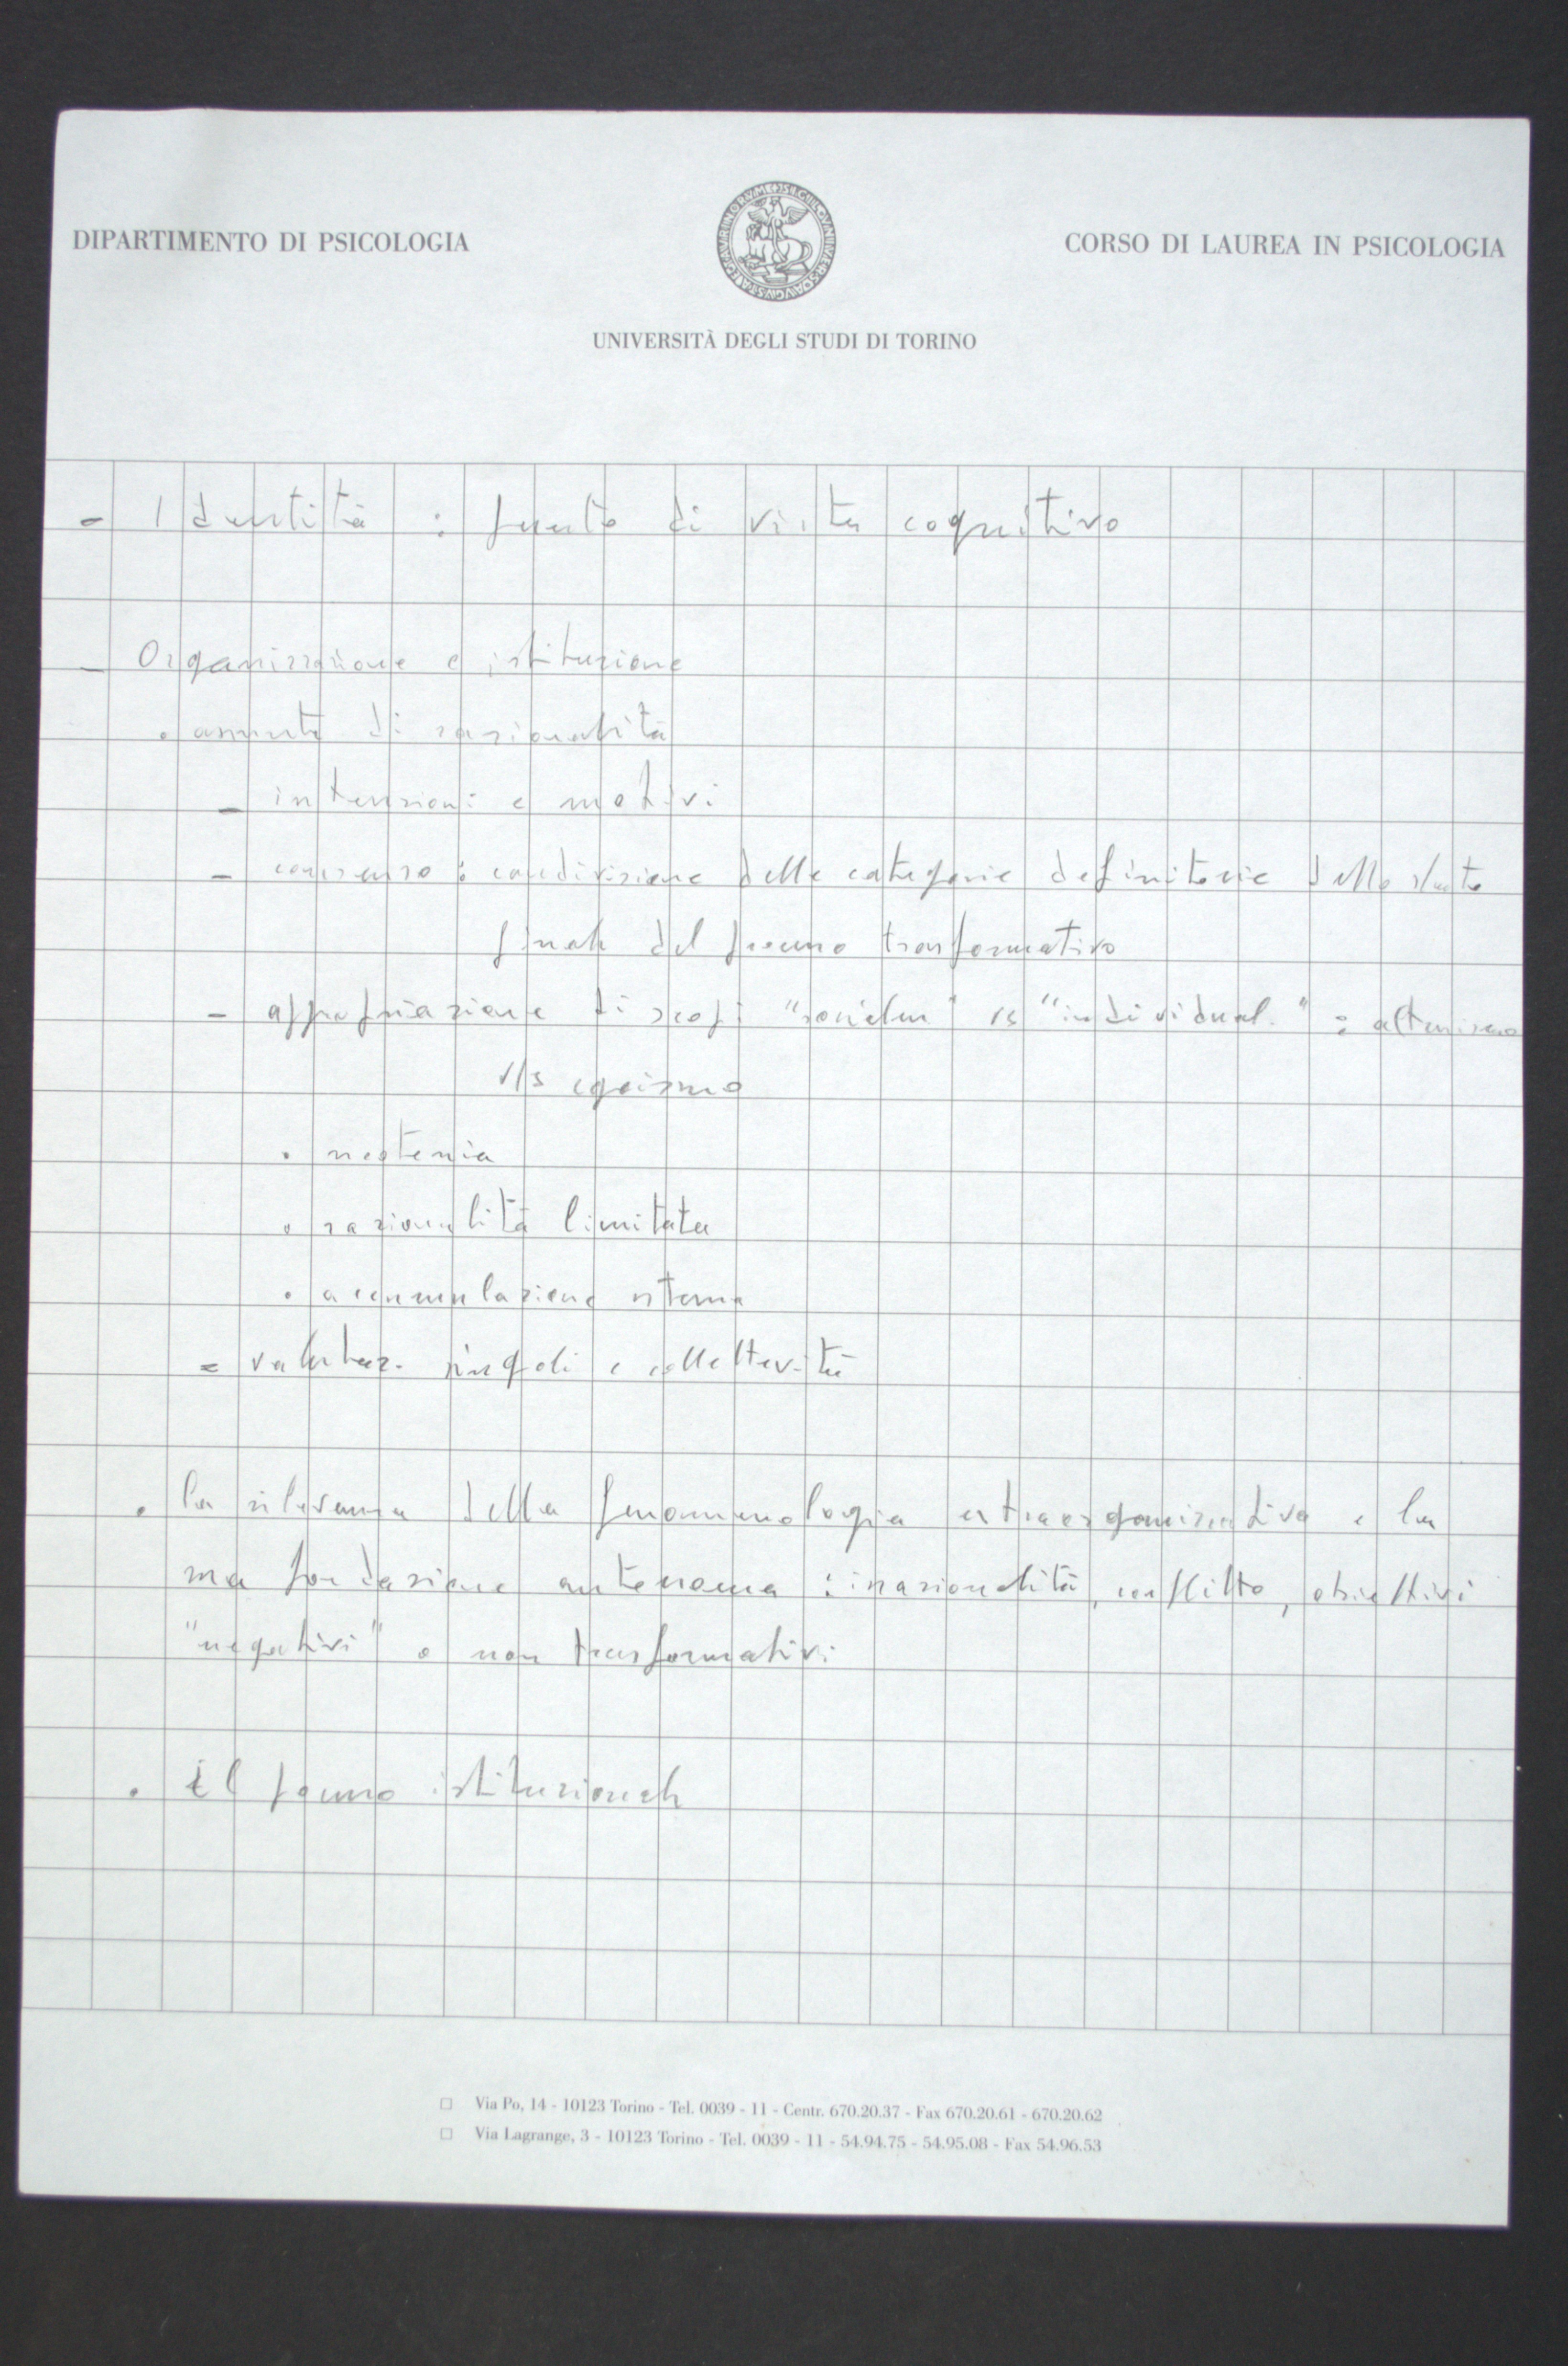 DIPARTIMENTO DI PSICOLOGIA
CORSO DI LAUREA IN PSICOLOGIA
UNIVERSITÀ DEGLI STUDI DI TORINO
- Identità : punto di vista cognitivo
- Organizzazione e istituzione
• assunto di razionalità
- intenzioni e motivi
- consenso : condivisione delle categorie definitorie dello stato
finale del processo trasformativo
- appropriazione di scopi "societari" vs "individual." : altruismo
v/s egoismo
• neotenia
• razionalità limitata
• accumulazione esterna
= valutaz. singoli e collettività
• la rilevanza della fenomenologia extraorganizzativa e la
sua fondazione autonoma : irrazionalità, conflitto, obiettivi
"negativi" o non trasformativi
• il processo istituzionale
Via Po, 14 - 10123 Torino - Tel. 0039 - 11 - Centr. 670.20.37 - Fax 670.20.61 - 670.20.62
Via Lagrange, 3 - 10123 Torino - Tel. 0039 - 11 - 54.94.75 - 54.95.08 - Fax 54.96.53